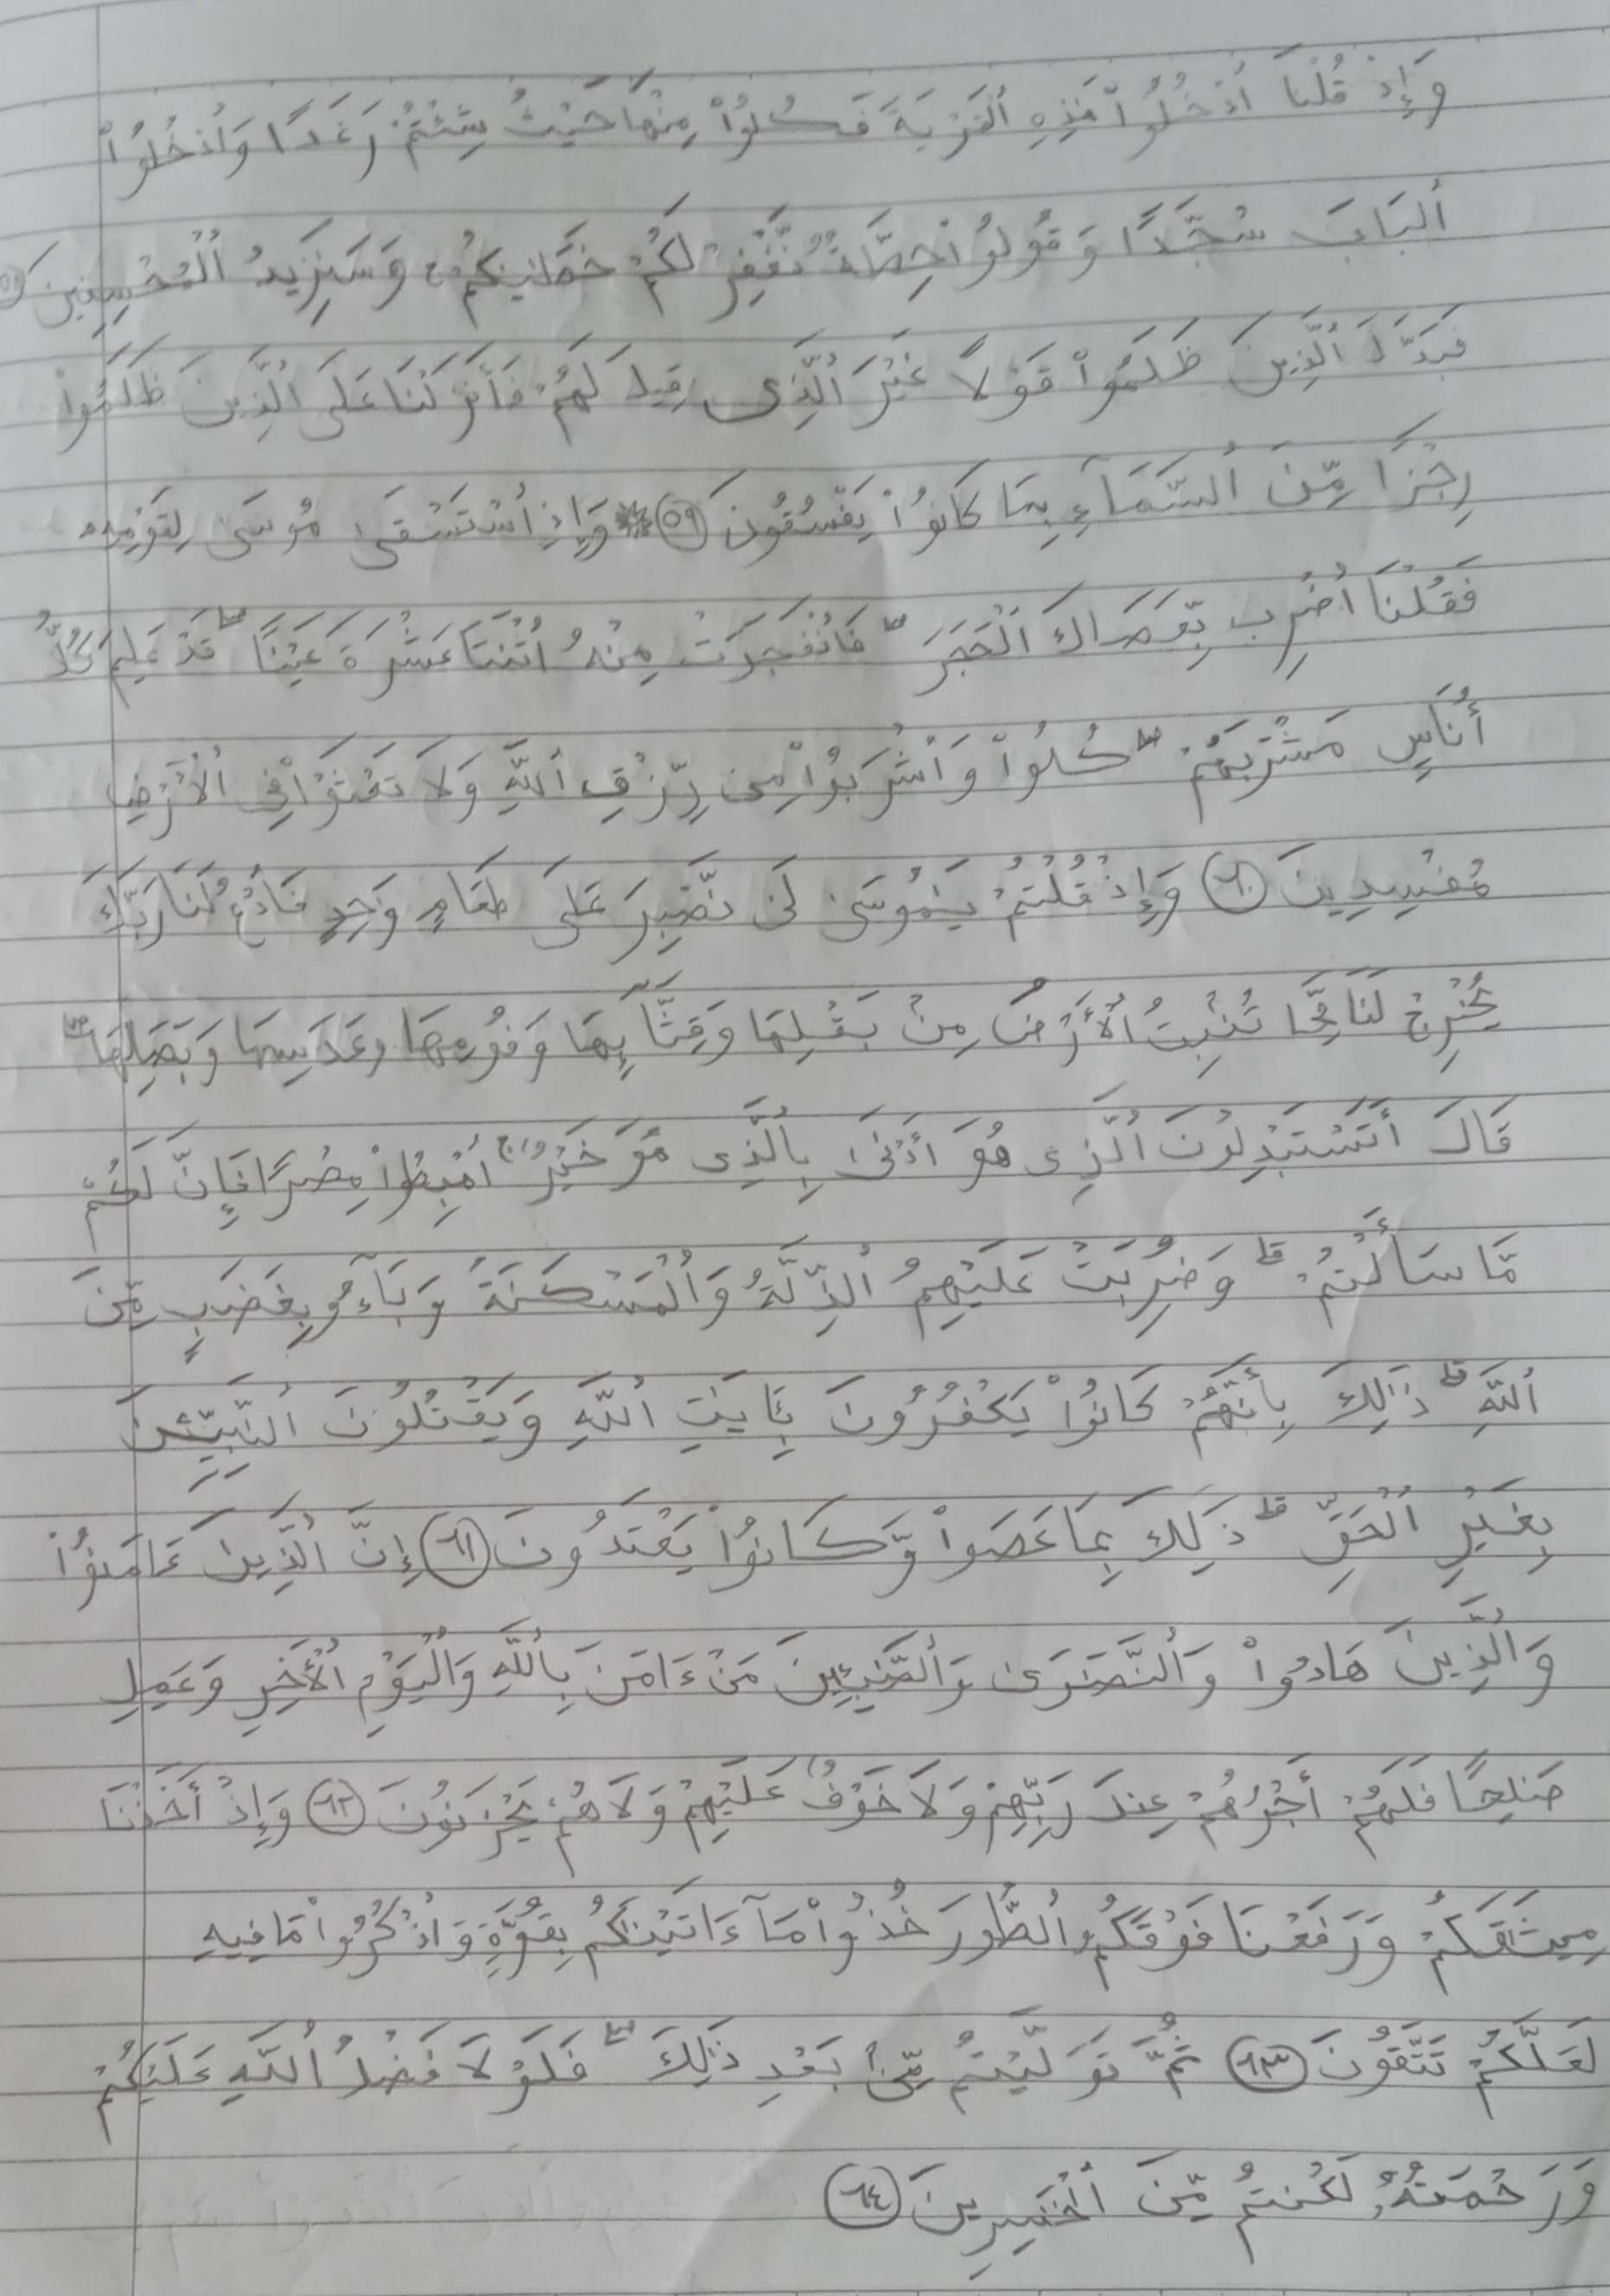 وَإِذْ قُلْنَا ٱدْخُلُوا۟ هَٰذِهِ ٱلْقَرْيَةَ فَكُلُوا۟ مِنْهَا حَيْثُ شِئْتُمْ رَغَدًا وَٱدْخُلُوا۟
ٱلْبَابَ سُجَّدًا وَقُولُوا۟ حِطَّةٌ نَّغْفِرْ لَكُمْ خَطَٰيَٰكُمْ ۚ وَسَنَزِيدُ ٱلْمُحْسِنِينَ ٥٨
فَبَدَّلَ ٱلَّذِينَ ظَلَمُوا۟ قَوْلًا غَيْرَ ٱلَّذِى قِيلَ لَهُمْ فَأَنزَلْنَا عَلَى ٱلَّذِينَ ظَلَمُوا۟
رِجْزًا مِّنَ ٱلسَّمَآءِ بِمَا كَانُوا۟ يَفْسُقُونَ ٥٩ * وَإِذِ ٱسْتَسْقَىٰ مُوسَىٰ لِقَوْمِهِۦ
فَقُلْنَا ٱضْرِب بِّعَصَاكَ ٱلْحَجَرَ ۖ فَٱنفَجَرَتْ مِنْهُ ٱثْنَتَا عَشْرَةَ عَيْنًا ۖ قَدْ عَلِمَ كُلُّ
أُنَاسٍ مَّشْرَبَهُمْ ۖ كُلُوا۟ وَٱشْرَبُوا۟ مِن رِّزْقِ ٱللَّهِ وَلَا تَعْثَوْا۟ فِى ٱلْأَرْضِ
مُفْسِدِينَ ٦٠ وَإِذْ قُلْتُمْ يَٰمُوسَىٰ لَن نَّصْبِرَ عَلَىٰ طَعَامٍ وَٰحِدٍ فَٱدْعُ لَنَا رَبَّكَ
يُخْرِجْ لَنَا مِمَّا تُنۢبِتُ ٱلْأَرْضُ مِنۢ بَقْلِهَا وَقِثَّآئِهَا وَفُومِهَا وَعَدَسِهَا وَبَصَلِهَا ۖ
قَالَ أَتَسْتَبْدِلُونَ ٱلَّذِى هُوَ أَدْنَىٰ بِٱلَّذِى هُوَ خَيْرٌ ۚ ٱهْبِطُوا۟ مِصْرًا فَإِنَّ لَكُم
مَّا سَأَلْتُمْ ۗ وَضُرِبَتْ عَلَيْهِمُ ٱلذِّلَّةُ وَٱلْمَسْكَنَةُ وَبَآءُو بِغَضَبٍ مِّنَ
ٱللَّهِ ۗ ذَٰلِكَ بِأَنَّهُمْ كَانُوا۟ يَكْفُرُونَ بِـَٔايَٰتِ ٱللَّهِ وَيَقْتُلُونَ ٱلنَّبِيِّـۧنَ
بِغَيْرِ ٱلْحَقِّ ۗ ذَٰلِكَ بِمَا عَصَوا۟ وَّكَانُوا۟ يَعْتَدُونَ ٦١ إِنَّ ٱلَّذِينَ ءَامَنُوا۟
وَٱلَّذِينَ هَادُوا۟ وَٱلنَّصَٰرَىٰ وَٱلصَّٰبِـِٔينَ مَنْ ءَامَنَ بِٱللَّهِ وَٱلْيَوْمِ ٱلْـَٔاخِرِ وَعَمِلَ
صَٰلِحًا فَلَهُمْ أَجْرُهُمْ عِندَ رَبِّهِمْ وَلَا خَوْفٌ عَلَيْهِمْ وَلَا هُمْ يَحْزَنُونَ ٦٢ وَإِذْ أَخَذْنَا
مِيثَٰقَكُمْ وَرَفَعْنَا فَوْقَكُمُ ٱلطُّورَ خُذُوا۟ مَآ ءَاتَيْنَٰكُم بِقُوَّةٍ وَٱذْكُرُوا۟ مَا فِيهِ
لَعَلَّكُمْ تَتَّقُونَ ٦٣ ثُمَّ تَوَلَّيْتُم مِّنۢ بَعْدِ ذَٰلِكَ ۖ فَلَوْلَا فَضْلُ ٱللَّهِ عَلَيْكُمْ
وَرَحْمَتُهُۥ لَكُنتُم مِّنَ ٱلْخَٰسِرِينَ ٦٤